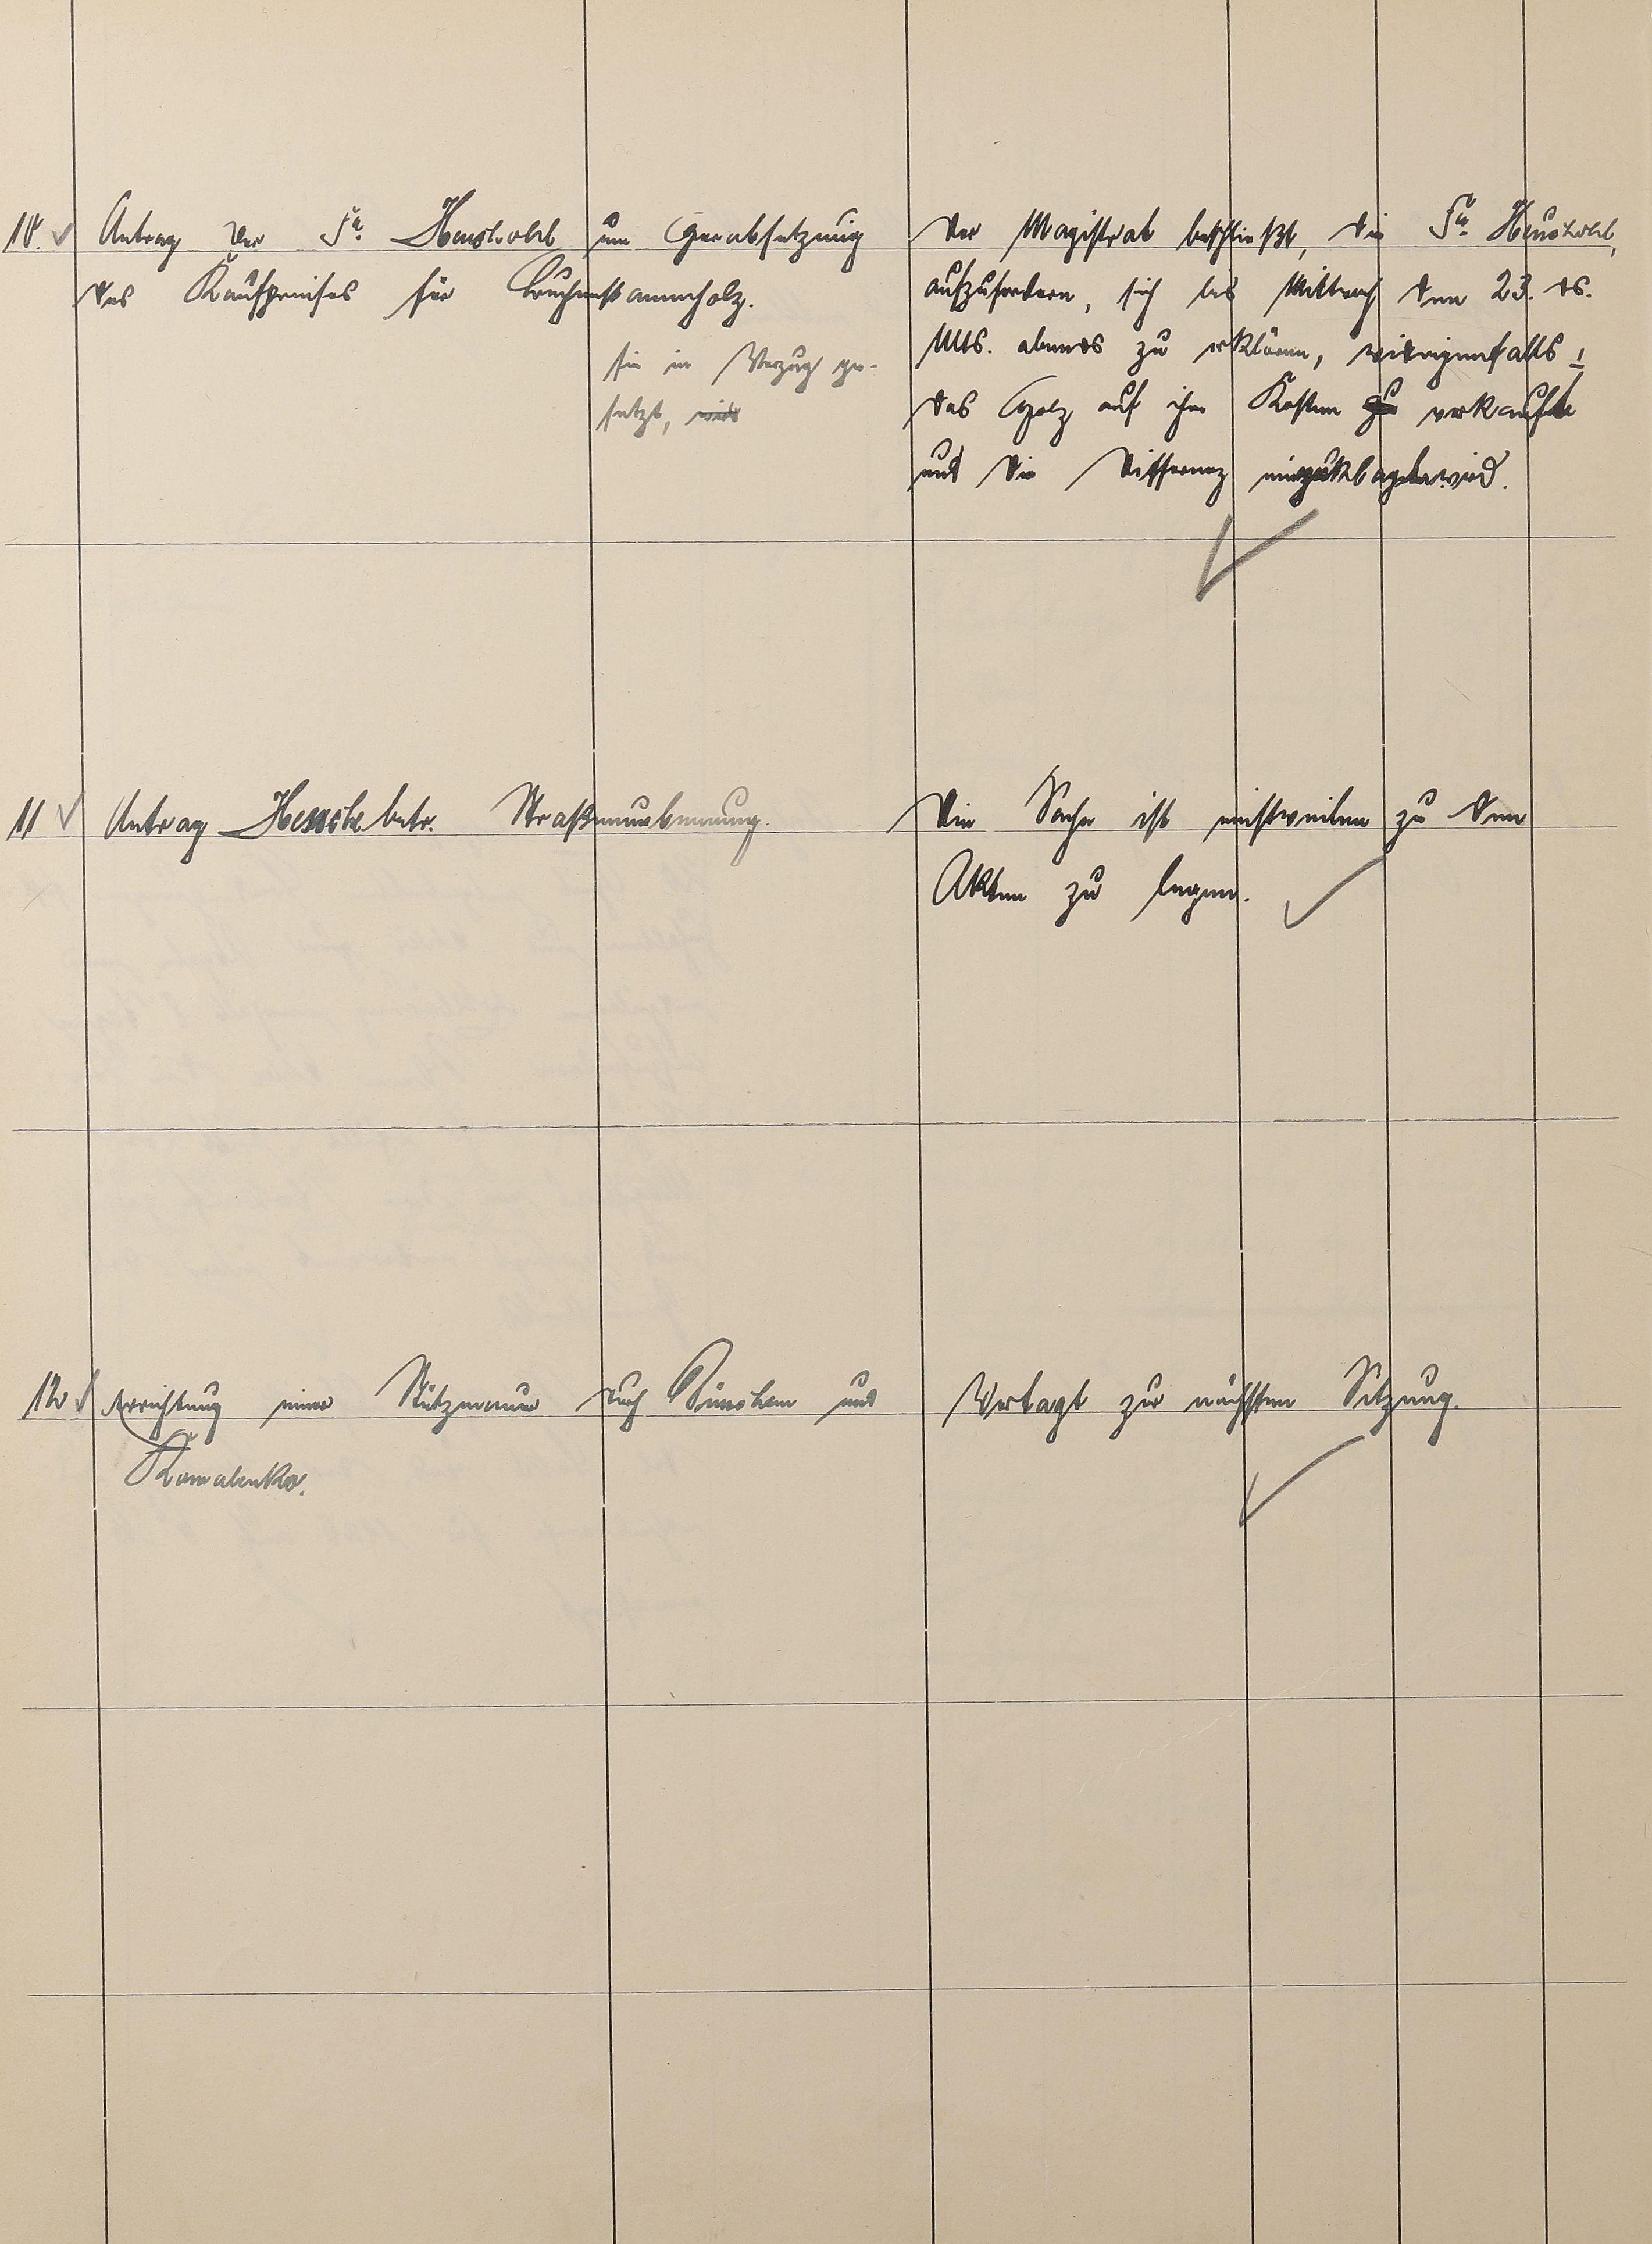 10. Antrag der Fa. Heuskohl um Herabsetzung
des Kaufpreises für Buchenstammholz.
sie in Verzug ge-
setzt,
Der Magistrat beschließt, die Fa. Heuskohl,
aufzufordern, sich bis Mittwoch den 23. ds.
Mts. abends zu erklären, widrigenfalls
das Holz auf ihre Kosten verkauft
und die Differenz eingeklagt wird.
11 Antrag betr. Straßenumbenennung.
Die Sache ist einstweilen zu den
Akten zu legen.
12 Errichtung einer Stützmauer durch und
Vertagt zur nächsten Sitzung.